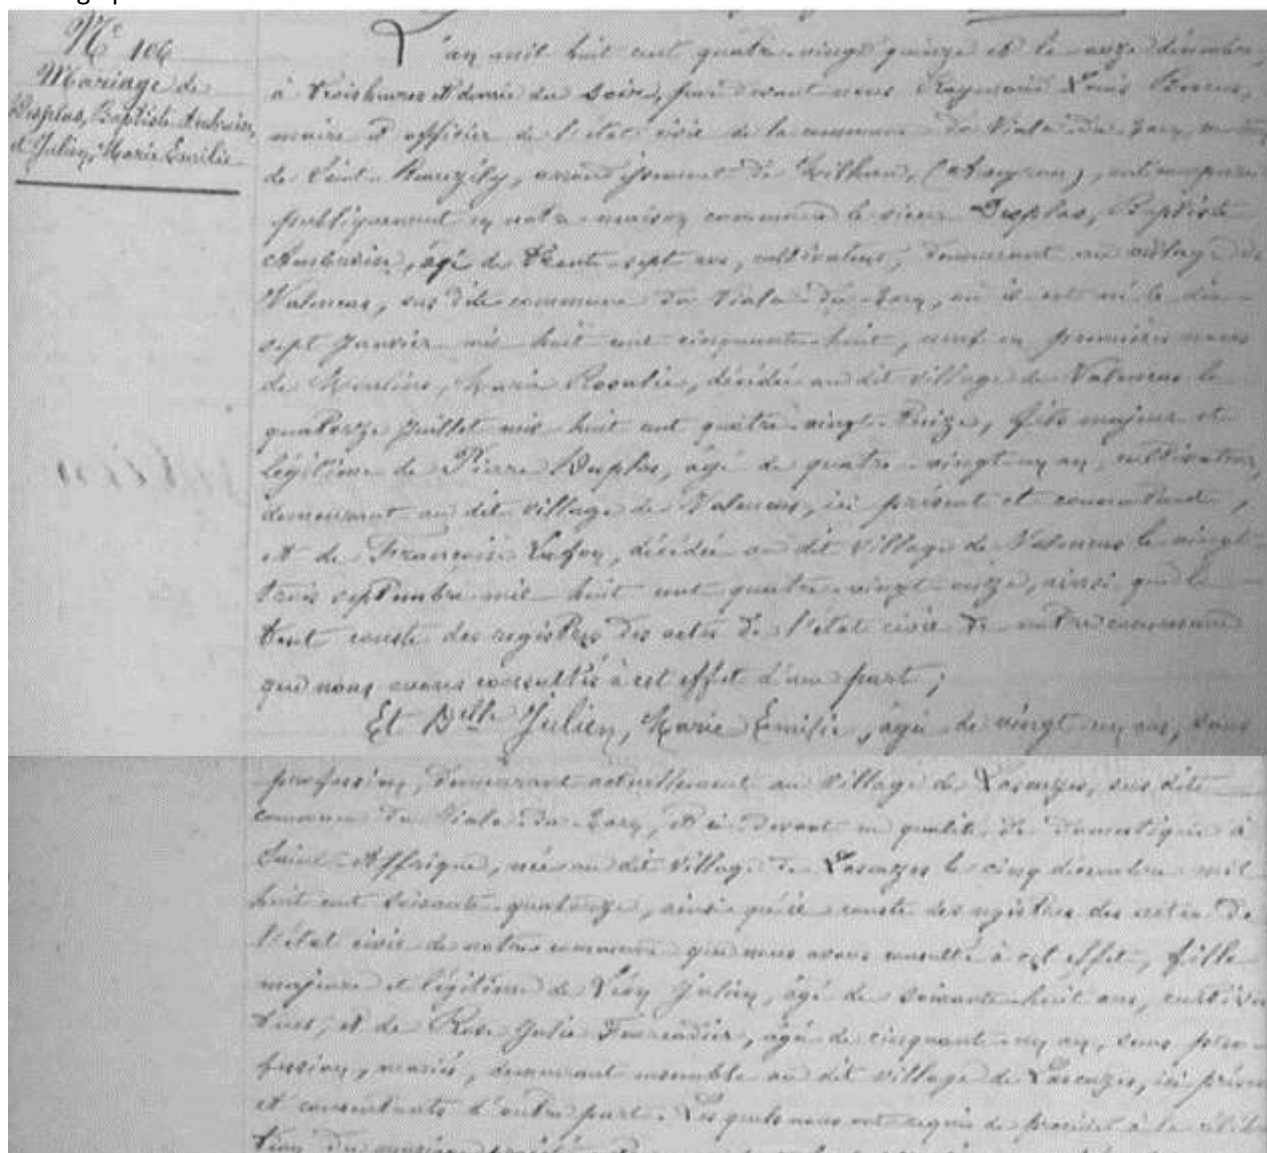 N° 106
Mariage de
Desplas, Baptiste Ambroise,
et Julien, Marie Emilie
L'an mil huit cent quatre-vingt quinze et le onze décembre,
à trois heures et demie du soir, par devant nous Raymond Louis
maire et officier de l'état civil de la commune du Viala-du-Tarn, canton
de Saint-Beauzély, arrondissement de Milhau, (Aveyron), ont comparu
publiquement en notre maison commune le sieur Desplas, Baptiste
Ambroise, âgé de trente-sept ans, cultivateur, demeurant au village de
sus dite commune du Viala-du-Tarn, où il est né le dix-
sept Janvier mil huit cent cinquante-huit, veuf en premières noces
de Marie Rosalie, décédée au dit village de le
quatorze Juillet mil huit cent quatre-vingt-treize, fils majeur et
légitime de Pierre Desplas, âgé de quatre-vingt-un an, cultivateur,
demeurant au dit village de ici présent et consentant,
et de Françoise Lafon, décédée au dit village de le vingt-
trois septembre mil huit cent quatre-vingt-onze, ainsi que le
tout conste des registres des actes de l'état civil de notre commune
que nous avons consultés à cet effet d'une part;
Et Delle Julien, Marie Emilie, âgée de vingt-un ans, sans
profession, demeurant actuellement au village de Lascazes, sus dite
commune du Viala-du-Tarn, et ci-devant en qualité de domestique à
Saint-Affrique, née au dit village de Lascazes le cinq décembre mil
huit cent soixante-quatorze, ainsi qu'il conste des registres des actes de
l'état civil de notre commune que nous avons consulté à cet effet, fille
majeure et légitime de Léon Julien, âgé de soixante-huit ans, cultiva
teur, et de Rose Julie âgée de cinquante-un an, sans pro-
fession, mariés, demeurant ensemble au dit village de Lascazes, ici présents
et consentants d'autre part. Lesquels nous ont requis de procéder à la célébra
tion du mariage